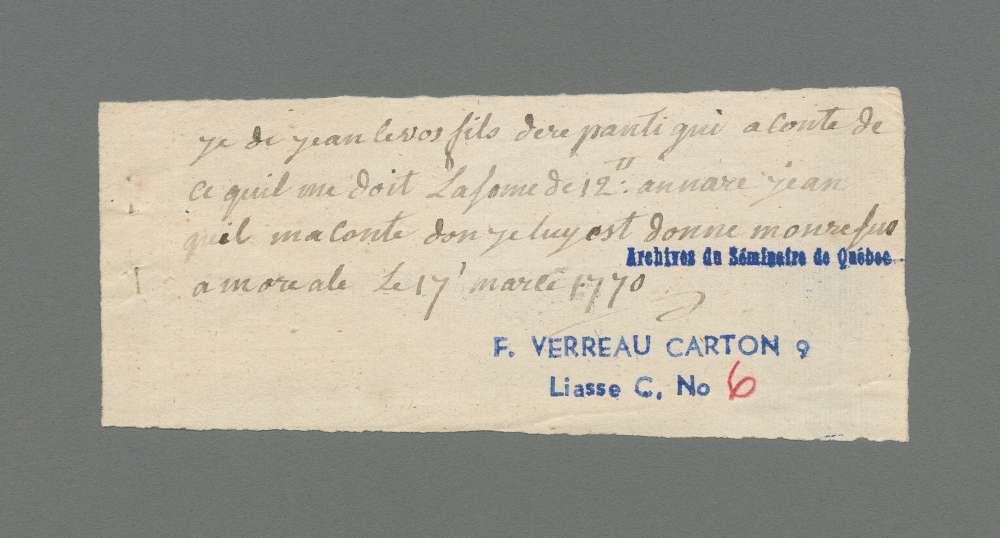 ye de yean levos fils dere panti qui a conte de
ce quil me doit La some de 12 ʺ. annare yean
quil ma conte don ye luy est donne mon resus
a more ale Le 17 marce 1770
Archives du Séminaire de Québec
F. VERREAU CARTON 9
Liasse C. No 6